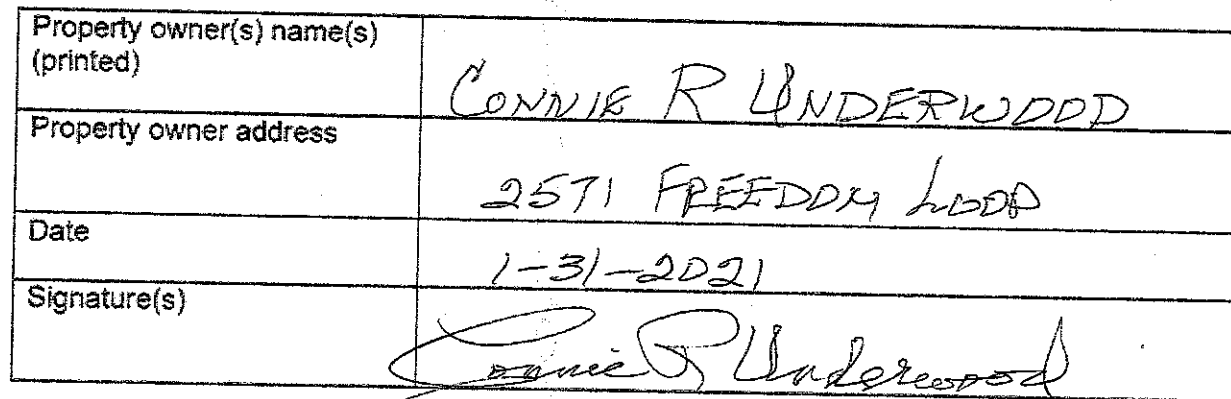 Property owner(s) name(s)
(printed)
CONNIE R UNDERWOOD
Property owner address
2571 FREEDOM LOOP
Date
1-31-2021
Signature(s)
Connie R Underwood